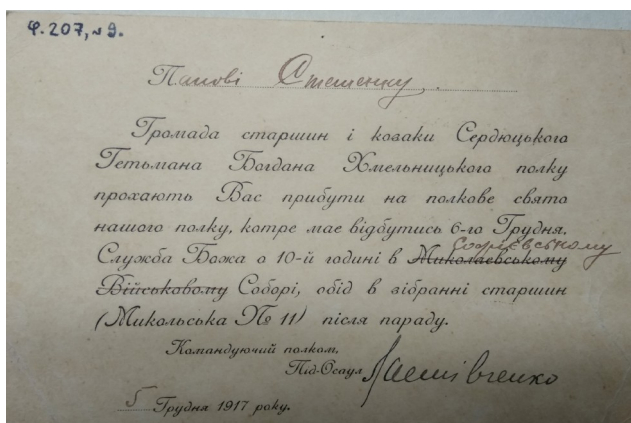 Ф. 207, № 9.
Панові Стешенку.
Громада старшин і козаки Сердюцького
Гетьмана Богдана Хмельницького полку
прохають Вас прибути на полкове свято
нашого полку, котре має відбутись 6-го Грудня.
Софієвському
Служба Божа о 10-й годині в Миколаєвському
Військовому Соборі, обід в зібранні старшин
(Микольська № 11) після параду.
Командуючий полком,
Під-Осаул Ластівченко
5 Грудня 1917 року.